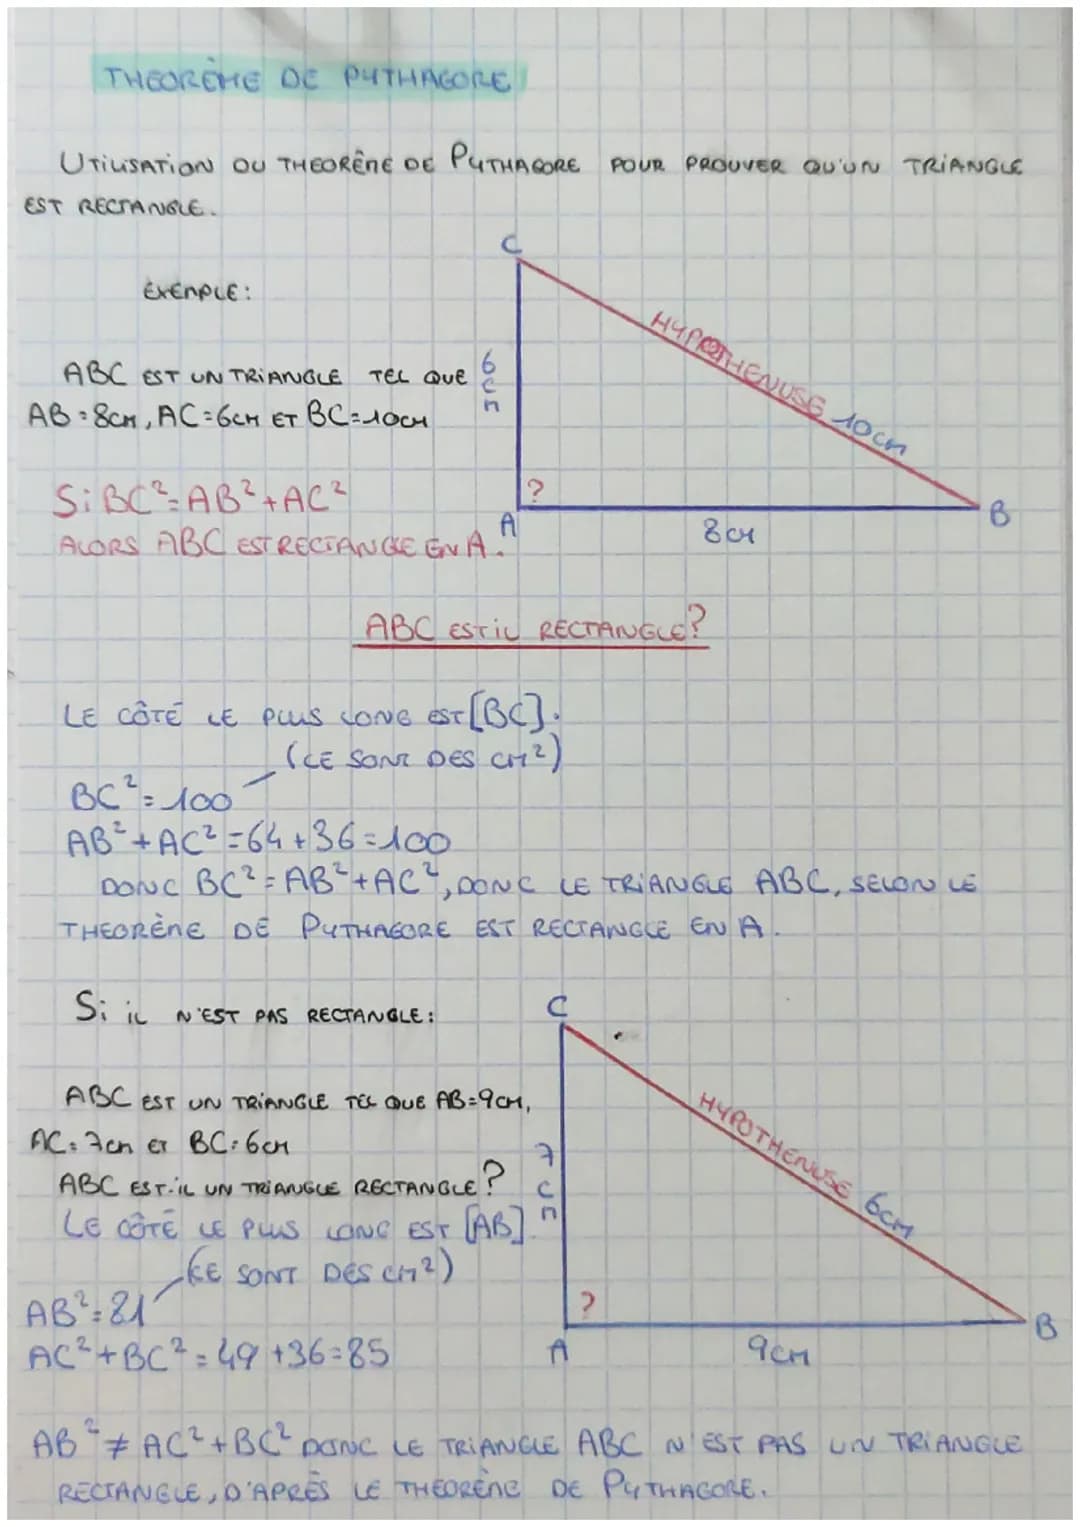 THEORÈME DE PYTHAGORE
UTILISATION DU THEORÊME DE PYTHAGORE POUR PROUVER QU'UN TRIANGLE
EST RECTANGLE.
C
EXEMPLE:
HYPOTHENUSE 10CM
ABC EST UN TRIANGLE TEL QUE
6CM
AB=8CM, AC=6CM ET BC=10CM
Si BC²=AB²+AC²
?
A
8CM
B
ALORS ABC EST RECTANGLE EN A.
ABC EST IL RECTANGLE?
LE CÔTÉ LE PLUS LONG EST [BC].
(CE SONT DES CM²)
BC²=100
AB²+AC²=64+36=100
DONC BC²=AB²+AC², DONC LE TRIANGLE ABC, SELON LE
THEORÈME DE PYTHAGORE EST RECTANGLE EN A.
Si iL N'EST PAS RECTANGLE:
C
ABC EST UN TRIANGLE TEL QUE AB=9CM,
HYPOTHENUSE 6CM
AC=7CM ET BC=6CM
7CM
ABC EST-iL UN TRIANGLE RECTANGLE?
LE CÔTÉ LE PLUS LONG EST [AB].
(CE SONT DES CM²)
AB²=81
?
B
AC²+BC²=49+36=85
A
9CM
AB²≠AC²+BC² DONC LE TRIANGLE ABC N'EST PAS UN TRIANGLE
RECTANGLE, D'APRÈS LE THEORÈME DE PYTHAGORE.